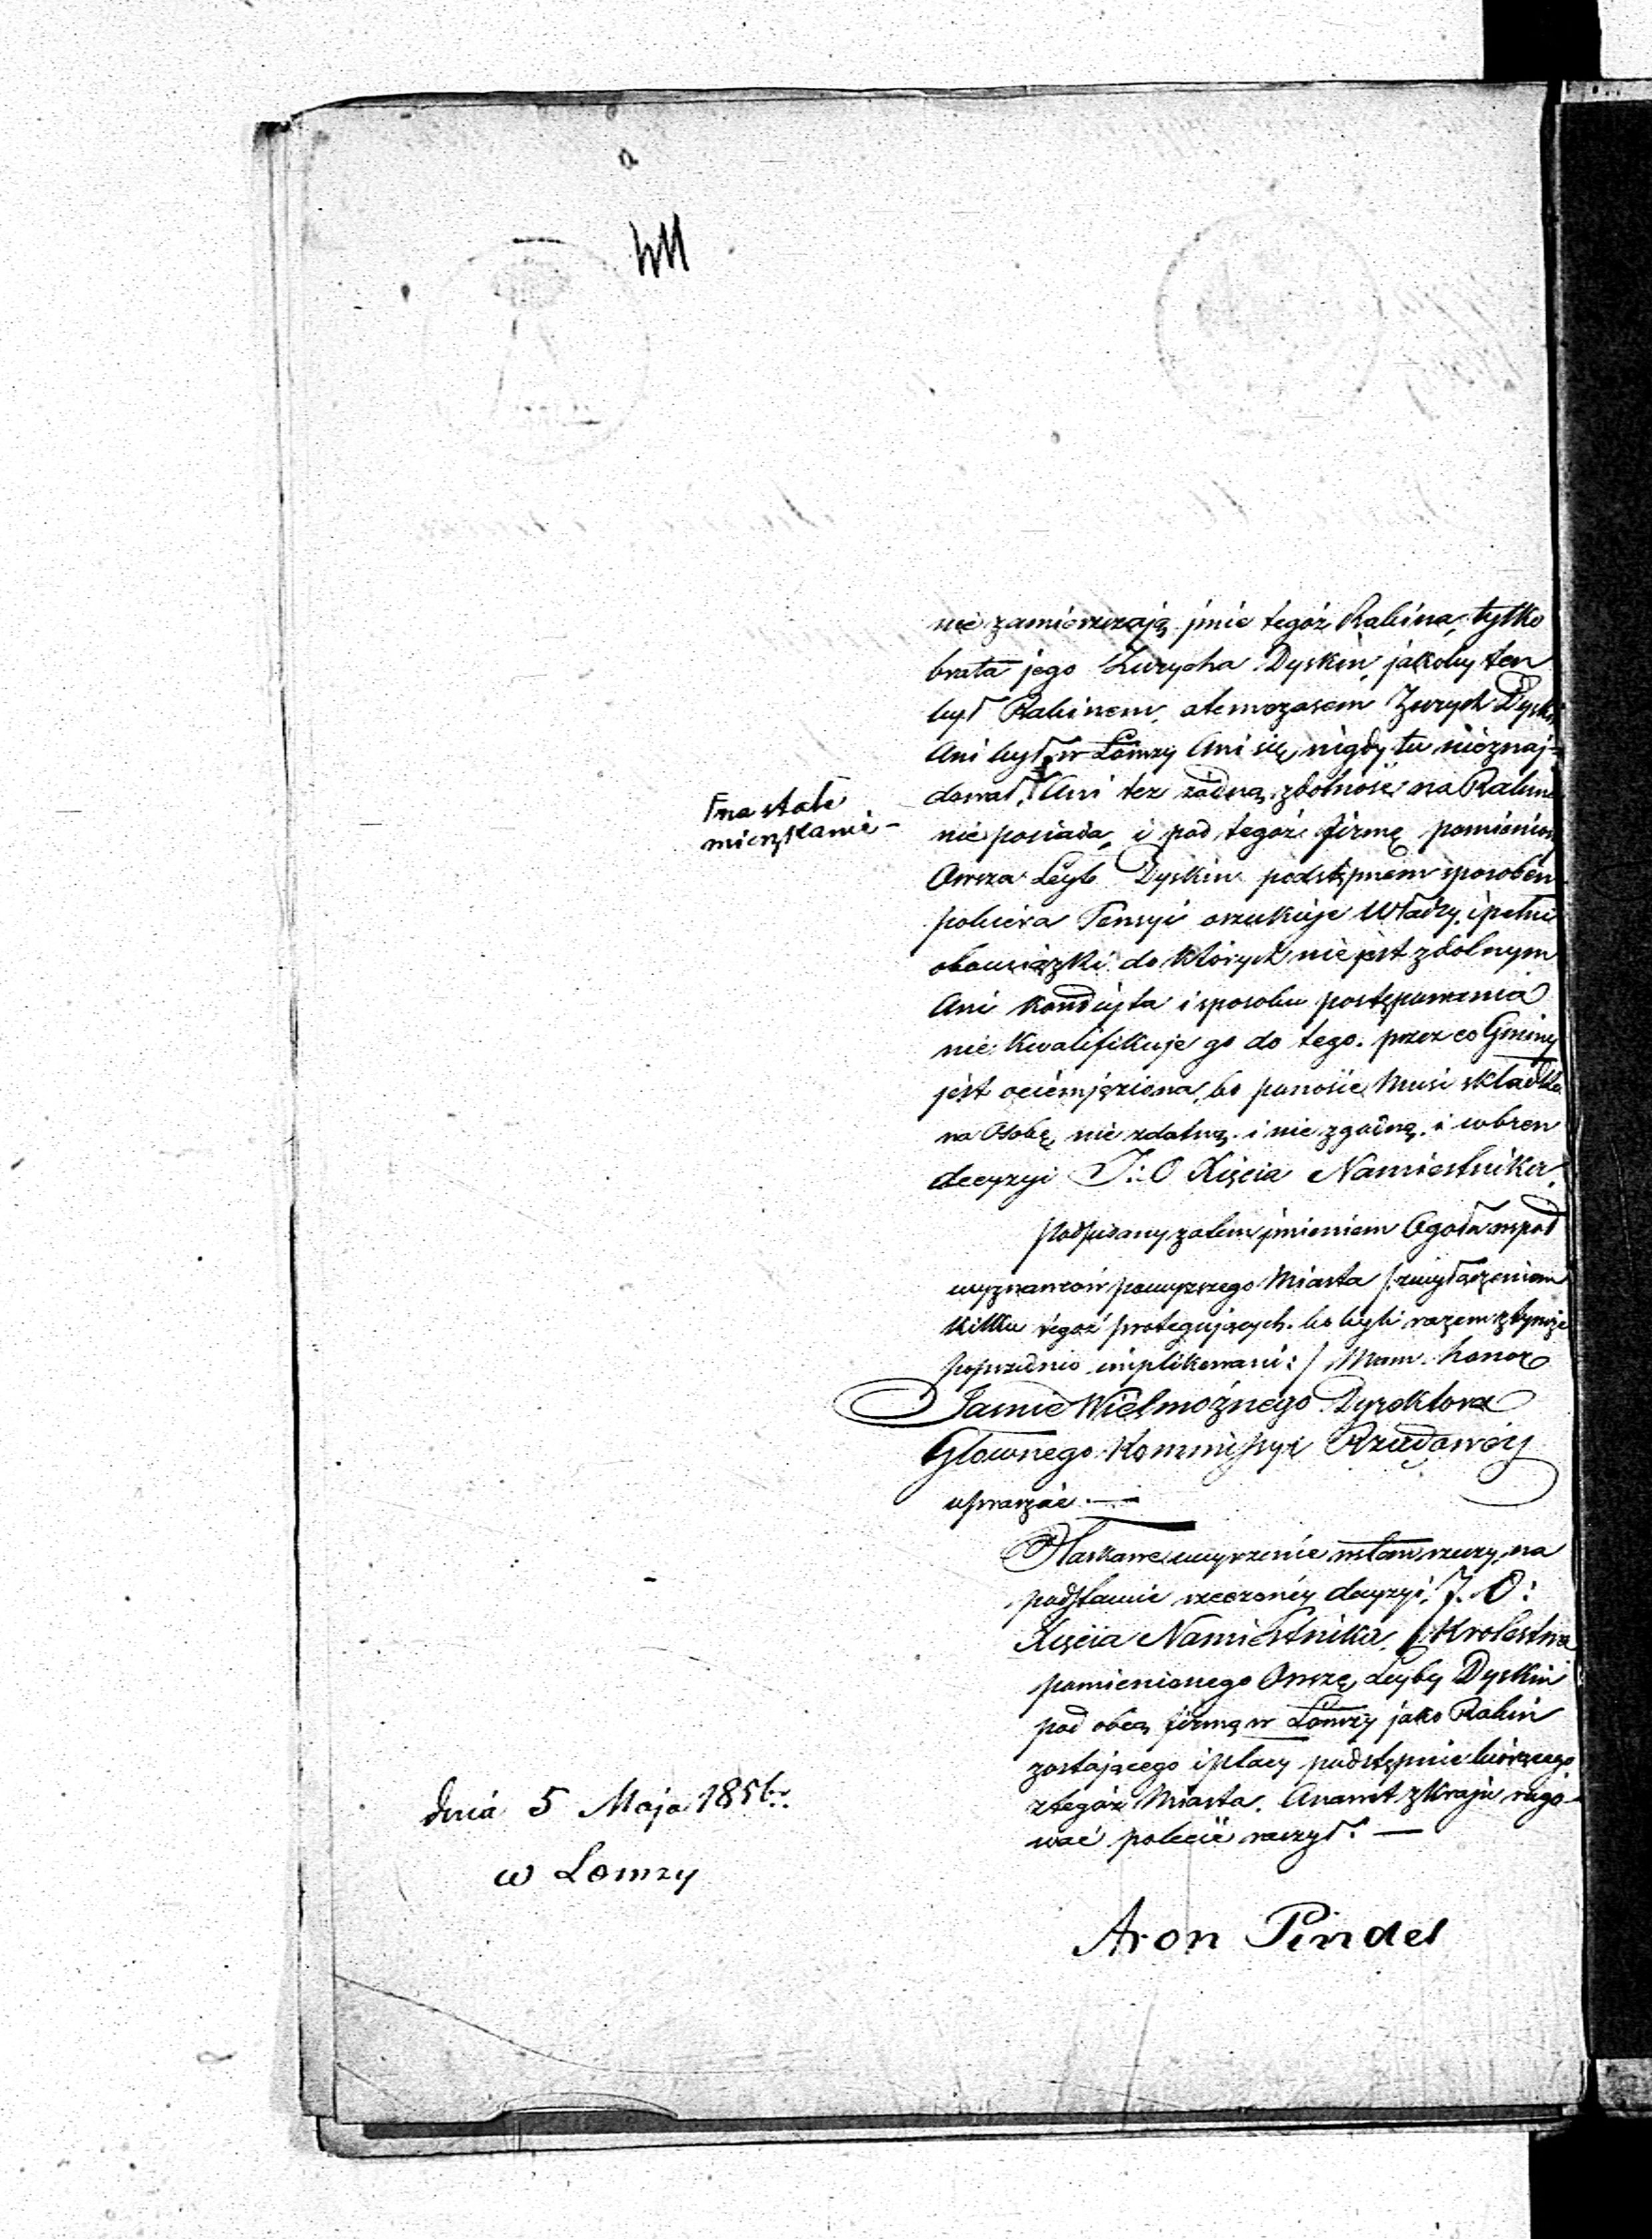 nie zamierzają jmie tegoż Rabina, tylko
brata jego Zurycha Dyskin, jakoby ten
był Rabinem, atemczasem Zurych Dyskin
Ani był w Łomzy Ani się nigdy tu nieznaj=
dował, Γ Ani tez żadną zdolność na Rabina
Γ na stałe
mieszkanie –
nie posiada, i pod tegoż firmę
Owsza Leyb Dyskin podstępnem sposobem
pobiera Pensyi oszukuje Władzy, i pełni
obowiązki do których nie jest zdolnym
Ani kondujta i sposobu postępowania
nie kwalifikuje go do tego. przez co Gminy
jest ociemięziona, bo ponosić musi składke
na Osobę nie zdatną i nie zgodną i wbrew
decyzyi J: O Xięcia Namiestnika.
Podpisany zatem jmieniem Ogoła współ
wyznawców powyzszego Miasta /: zwyłączeniem
kilku tegoż protegujących. bo byli razem ztymże
poprzednio implikowani: / Mam honor
Jaśnie Wielmożnego Dyrektora
Głownego Kommissyi Rządowéy
upraszać. —
O łaskawe weyrzenie wstan rzeczy, na
podstawie rzeczonéy decyzyi, J. O:
Xięcia Namiestnika, Krolestwa
pomienionego Owszę Leyby Dyskin
pod obcą firmą w Łomzy jako Rabin
zostającego i płacy podstępnie biorącego
ztegoż Miasta. Anawet zkraju rugo-
wać polecić raczył. —
dnia 5 Maja 1856 r.
w Lomzy
Aron Pindel